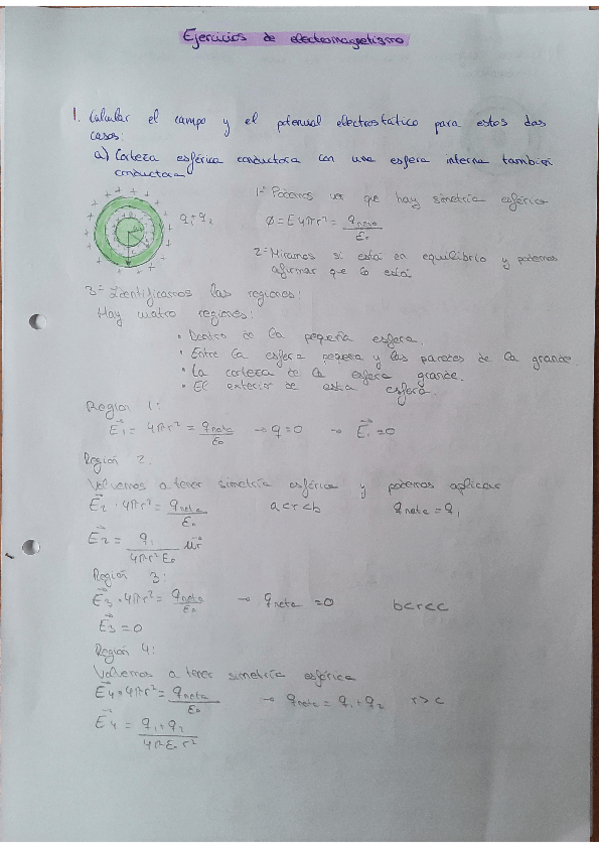 Ejercicios de electromagnetismo
1. Calcular el campo y el potencial electrostático para estos dos
casos:
a) Corteza esférica conductora con una esfera interna también
conductora
1º Podemos ver que hay simetría esférica
q₁ q₂
Ø = E 4πr² = q neta / E₀
2º Miramos si está en equilibrio y podemos
afirmar que lo está
3º Identificamos las regiones:
Hay cuatro regiones:
• Dentro de la pequeña esfera.
• Entre la esfera pequeña y las paredes de la grande.
• La corteza de la esfera grande.
• El exterior de esta esfera.
Región 1:
E₁ = 4πr² = q neta / E₀ → q = 0 → E₁ = 0
Región 2:
Volvemos a tener simetría esférica y podemos aplicar
E₂ · 4πr² = q neta / E₀ a<r<b q neta = q₁
E₂ = q₁ / 4πr² E₀ ur
Región 3:
E₃ · 4πr² = q neta / E₀ → q neta = 0 b<r<c
E₃ = 0
Región 4:
Volvemos a tener simetría esférica
E₄ · 4πr² = q neta / E₀ → q neta = q₁ + q₂ r>c
E₄ = q₁ + q₂ / 4πE₀ r²